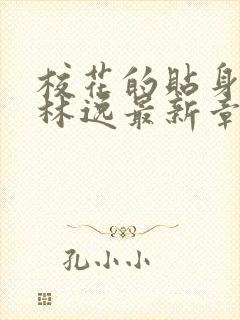 校花的贴身
林逸最新章
孔小小